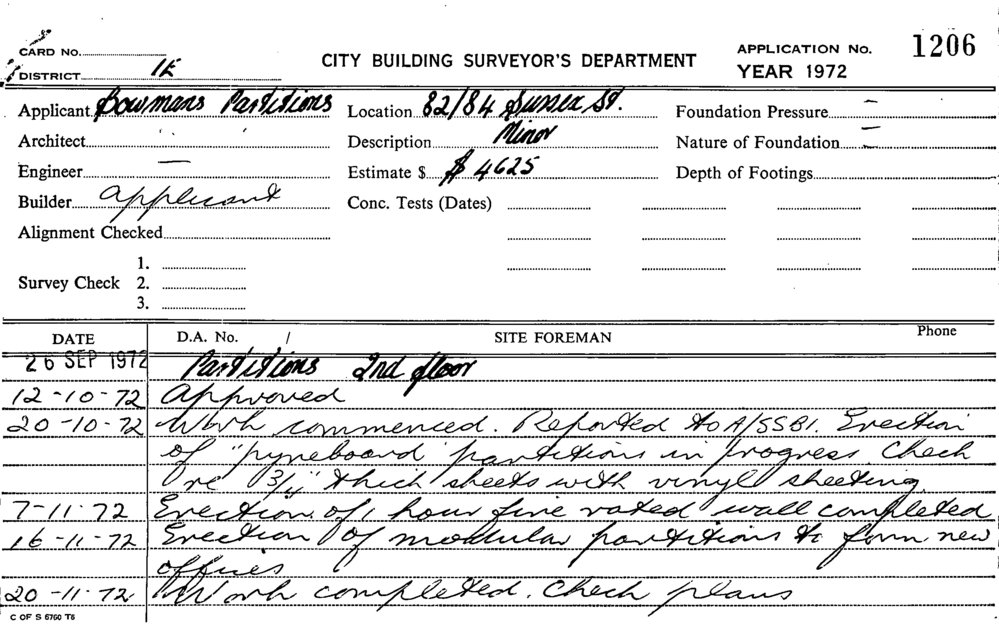 CARD No.
DISTRICT 1E
CITY BUILDING SURVEYOR'S DEPARTMENT
APPLICATION No. 1206
YEAR 1972
Applicant Bowmans Partitions
Location 82/84 Sussex St.
Foundation Pressure —
Architect
Description Minor
Nature of Foundation —
Engineer —
Estimate $ $ 4625
Depth of Footings
Builder applicant
Conc. Tests (Dates)
Alignment Checked
Survey Check
1.
2.
3.
DATE
D.A. No. /
SITE FOREMAN
Phone
26 SEP 1972 Partitions 2nd floor
12-10-72 Approved
20-10-72 Work commenced. Reported to A/SSBI. Erection
of "pyneboard" partitions in progress Check
re 1 3/4" thick sheets with vinyl sheeting
7-11-72 Erection of 1 hour fire rated wall completed
16-11-72 Erection of modular partitions to form new
offices
20-11-72 Work completed. Check plans
C OF S 6760 T6